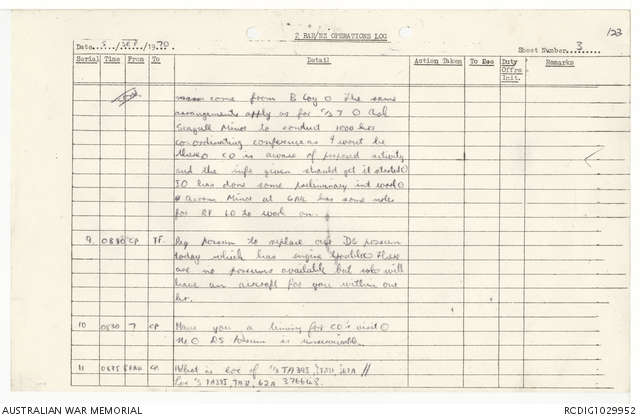 2 RAR/NZ OPERATIONS LOG
123
Date 5 / SEP / 1970
Sheet Number 3
Serial Time From To Detail Action Taken To Ees Duty Offrs Init. Remarks
come from B Coy O The same
arrangements apply as for 7 O Ask
Seagull Minor to conduct 1000 hrs
co-ordinating conference as I wont be
there O CO is aware of proposed activity
and the info given should get it started O
IO has done some preliminary int work O
Minor at has some notes
for to work on.
9 0830 CP TF. Req Possum to replace our DS possum
today which has engine trouble O There
are no possums available but will
have an aircraft for you within one
hr.
10 0830 7 CP Have you a timing for CO's visit O
No O DS Possum is unserviceable.
11 CP What is loc of
Loc 62A 376643
AUSTRALIAN WAR MEMORIAL
RCDIG1029952